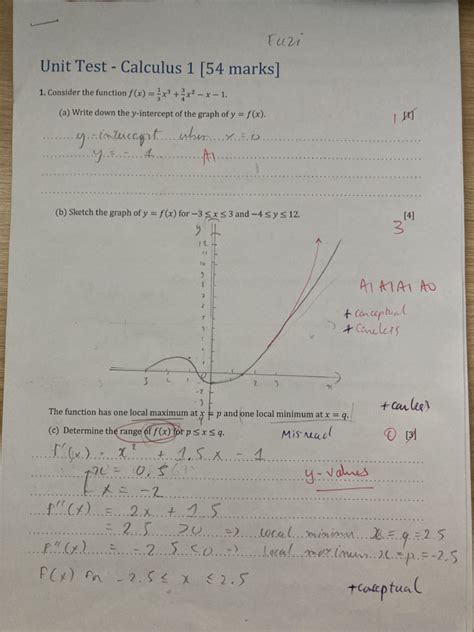 Fuzi
Unit Test - Calculus 1 [54 marks]
1. Consider the function f(x) = 1/3 x³ + 3/4 x² − x − 1.
(a) Write down the y-intercept of the graph of y = f(x).
1 [1]
y-intercept when x = 0
y = - 1 A1
(b) Sketch the graph of y = f(x) for −3 ≤ x ≤ 3 and −4 ≤ y ≤ 12.
3 [4]
y
12
A1 A1 A1 A0
+ conceptual
+ careless
2 3 x
The function has one local maximum at x = p and one local minimum at x = q.
+ careless
(c) Determine the range of f(x) for p ≤ x ≤ q.
Misread
0 [3]
f'(x) = x² + 1.5x − 1
x = 0.5
y-values
x = −2
f''(x) = 2x + 1.5
= 2.5 > 0 => local minimum x = q = 2.5
f''(x) = −2.5 < 0 => local maximum x = p = −2.5
f(x) −2.5 ≤ x ≤ 2.5
+ conceptual